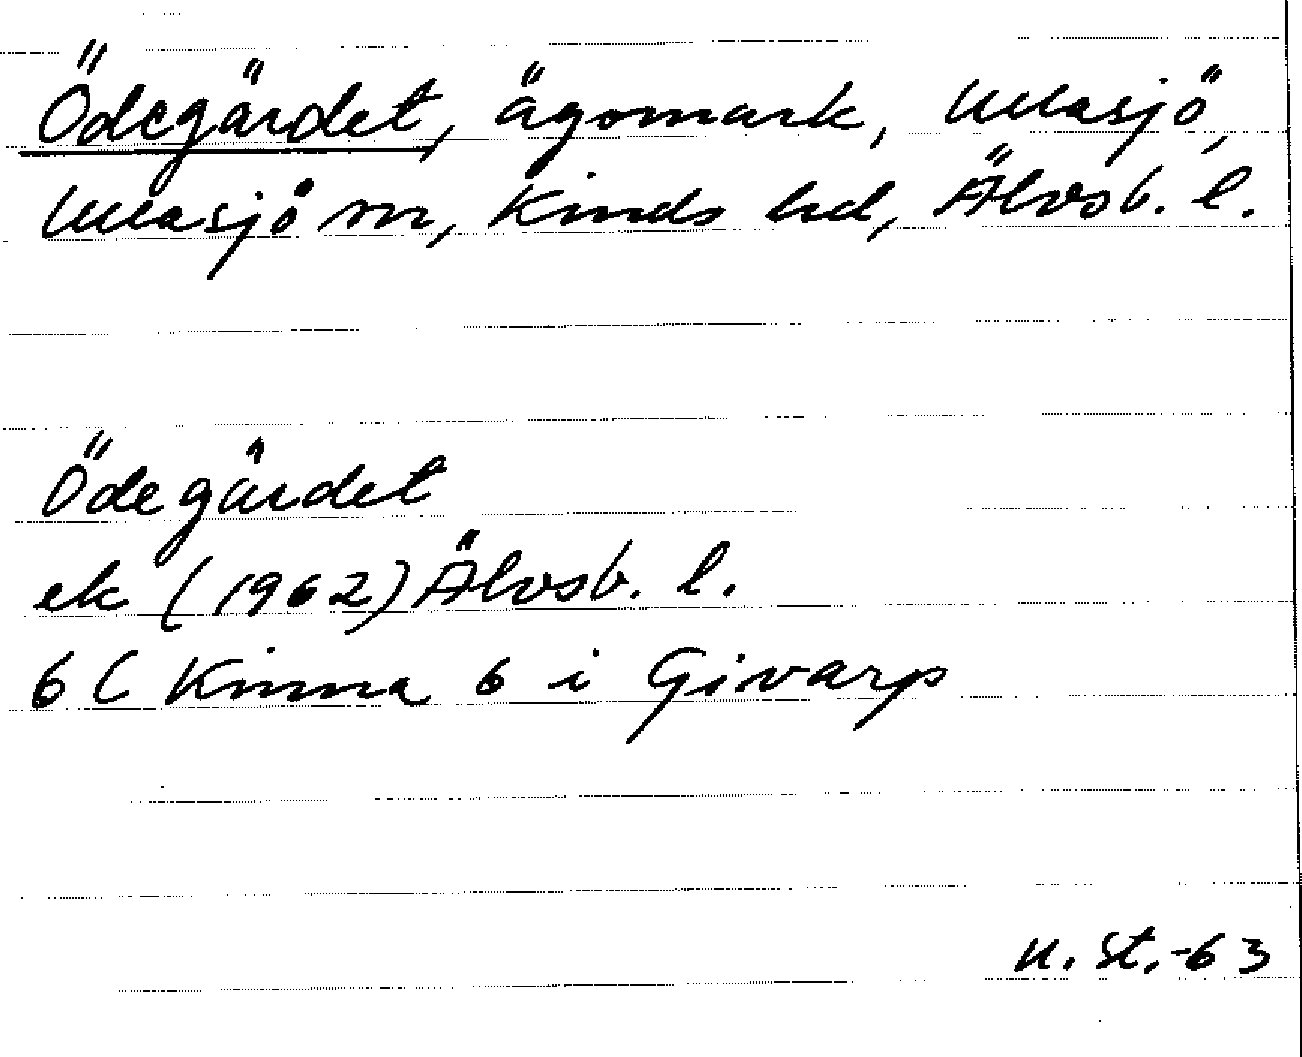 Ödegärdet, ägomark, Ullasjö,
Ullasjö sn, Kinds hd, Älvsb. l.
Ödegärdet
ek (1962) Älvsb. l.
6 C Kinna 6 i Givarp
U. St. -63